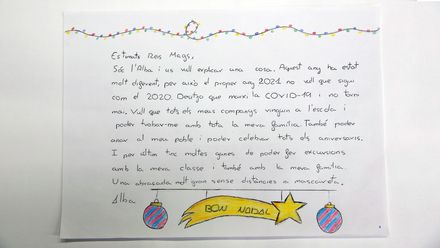 Estimats Reis Mags,
Sóc l'Alba i us vull explicar una cosa. Aquest any ha estat
molt diferent, per això el proper any 2021 no vull que sigui
com el 2020. Desitjo que marxi la COVID-19 i no torni
mai. Vull que tots els meus companys vinguin a l'escola i
poder trobar-me amb tota la meva família. També poder
anar al meu poble i poder celebrar tots els aniversaris.
I per últim tinc moltes ganes de poder fer excursions
amb la meva classe i també amb la meva família.
Una abraçada molt gran sense distàncies ni mascareta.
Alba
BON NADAL